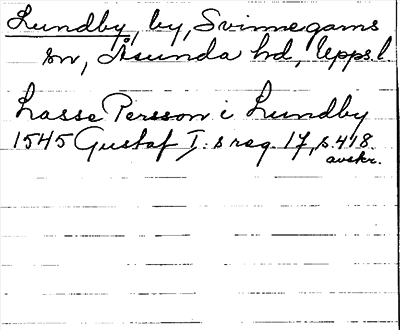 Lundby, by, Svinnegarns
sn, Åsunda hd, Uppsl.
Lasse Persson i Lundby
1545 Gustaf I:s reg. 17, s. 418.
avskr.